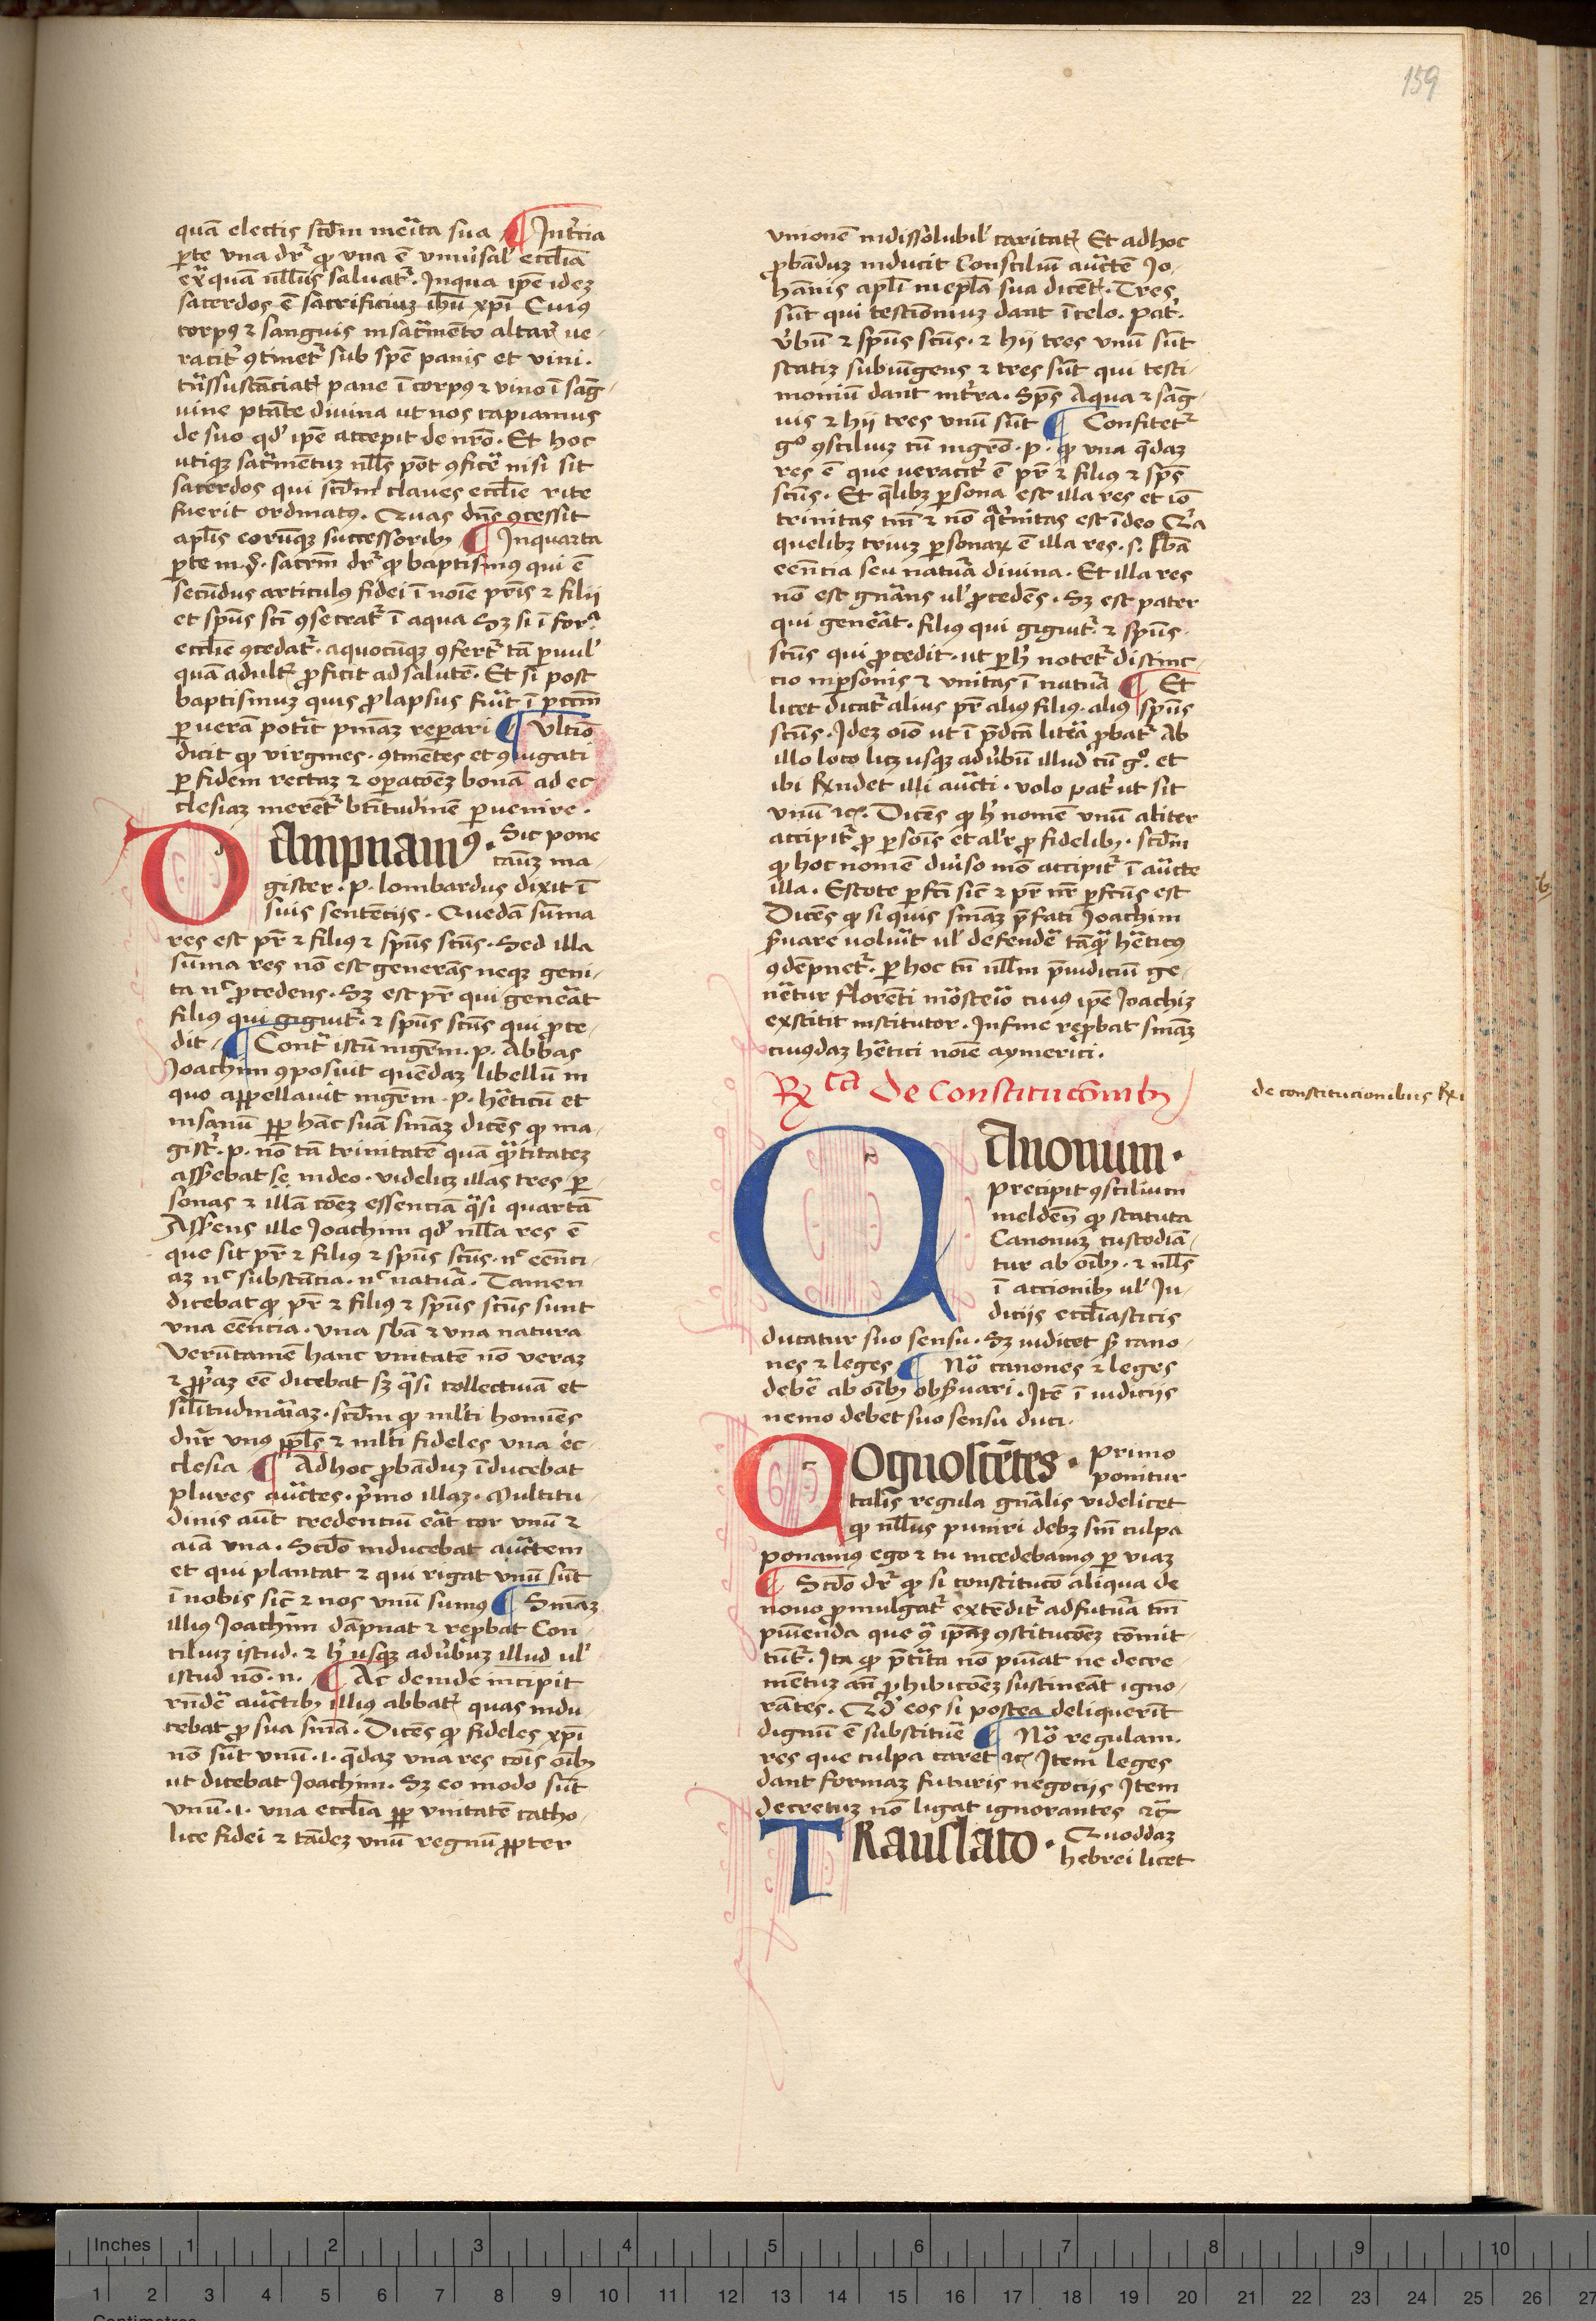 159
quā electis scd̄m merita sua ¶ Intercia
ꝑte vna dr̄ ꝙ vna ē vniu'sal' eccl̄ia
ex̄ quā nll̄us saluatr̄. Inqua ip̄e idez
sacerdos ē sacrificiuz ih̄u xp̄i Cuiꝰ
corpꝰ ⁊ sanguis insacr̄mento altar̄ ue
racit' ꝯtinetr̄ sub spē panis et vini.
trāssustāciat' pane ī corpꝰ ⁊ vino ī sāg
uine ptāte diuina ut nos capiamus
de suo qd' ip̄e accepit de nr̄o. Et hoc
utiqꝫ sacr̄mentuz nll̄s pōt ꝯficē nisi sit
sacerdos qui scd̄m claues eccl̄ie rite
fuerit ordinatꝰ. Quas dn̄s ꝯcessit
apl̄is eorūqꝫ successoribꝫ ¶ Inquarta
ꝑte
sacrm̄ dr̄ ꝙ baptismꝰ qui ē
secūdus articulꝰ fidei ī noīe pr̄is ⁊ filii
et spūs scī ꝯsecratr̄ ī aqua Sꝫ si ī for̄
eccl̄ie ꝯcedatr̄. aquocūqꝫ ꝯfertr̄ tā ꝑuul'
quā adult' ꝓficit ad salutē. Et si post
baptismuz quis ꝓlapsus fu'it ī pcc̄m
ꝑ uerā potit pniāz repari ¶ Vltīo
dicit ꝙ virgines. ꝯtinētes et ꝯiugati
ꝑ fidem rectaz ⁊ oꝑacōez bonā ad ec
clesiaz merent' btītudinē ꝑuenire.
Dampnamꝰ. Sic pone
cauz ma
gister. p. lombardus dixit ī
suis sentēcijs. Quedā sūma
res est pr̄ ⁊ filiꝰ ⁊ spūs scūs. Sed illa
sūma res nō est generās neqꝫ geni
ta nc̄ ꝓcedens. Sꝫ est pr̄ qui generāt
filiꝰ qui gignitr̄. ⁊ spūs scūs qui ꝓce
dit ¶ Contr̄ istū mgr̄m. p. Abbas
Joachim ꝯposiuit quēdaz libellū in
quo appellauit mgr̄m. p. hēticū et
insanū ꝓp̄ hāc suā sniāz dicēs ꝙ ma
gist'. p. nō tā trinitatē quā qr̄titatez
assēbat se in deo. videlicꝫ illas tres ꝑ
sonas ⁊ illā cōez essenciā qāsi quartā
Assēns ille Joachim qd' nll̄a res ē
que sit pr̄ ⁊ filiꝰ ⁊ spūs scūs. nc̄ eēnci
az nc̄ substācia. nc̄ natura. Tamen
dicebat ꝙ pr̄ ⁊ filiꝰ ⁊ spūs scūs sunt
vna eēncia. vna sbā ⁊ vna natura
Verūtamē hanc vnitatē nō veraz
⁊ ꝓp̄az eē dicebat sꝫ qāsi collectiuā et
sil'itudinariaz. scd̄m ꝙ ml'ti homīes
dn̄r vnꝰ ppl̄s ⁊ ml'ti fideles vna ec
clesia ¶ Adhoc ꝓbāduz īducebat
plures auctes. pīmo illaz. Multitu
dinis aūt credenciū erāt cor vnū ⁊
aīa vna. Scd̄o inducebat auctem
et qui plantat ⁊ qui rigat vnū sūt
ī nobis sic̄ ⁊ nos vnū sumꝰ ¶ Sniāz
illiꝰ Joachim dāpnat ⁊ reꝓbat Con
ciliuz istud. ⁊ h' usqꝫ adu'buz illud ul'
istud nō. n. ¶ Ac deinde incipit
rn̄dē auctibꝫ illiꝰ abbat' quas indu
cebat ꝓ sua sniā. Dicēs ꝙ fideles xp̄i
nō sūt vnū .i. qdaz vna res cōis oībꝫ
ut dicebat Joachim. Sꝫ eo modo sūt
vnū .i. vna eccl̄ia ꝓp̄ vnitatē catho
lice fidei ⁊ tādez vnū regnū ꝓpter
vnionē indissolubil' caritat' Et adhoc
ꝓbāduz inducit Consciliū auctē Jo
hānis apl̄i inepl̄a sua dicēt'. Tres
sūt qui testīoniuz dant īcelo. pat'.
v'bū ⁊ spūs scūs. ⁊ hij tres vnū sūt
statiz subiūgens ⁊ tres sūt qui testi
moniū dant int'ra. Sp̄s Aqua ⁊ sāg
uis ⁊ hij tres vnū sūt ¶ Confitetr̄
gº ꝯsciliuz cū mgrō. p. ꝙ vna q̄daz
res ē que ueracit' ē pr̄ ⁊ filiꝰ ⁊ spūs
scūs. Et q̄libꝫ ꝑsona est illa res et iō
trinitas tm̄ ⁊ nō qāt'nitas est ideo Qr̄a
quelibꝫ triuz ꝑsonaꝝ ē illa res. s. sbā
eēncia seu natura diuina. Et illa res
nō est gn̄ans ul' ꝓcedēs. Sꝫ est pater
qui generāt. filiꝰ qui gignitr̄. ⁊ spūs
scūs qui ꝓcedit. ut ꝑ h' notetr̄ distinc
cio inꝑsonis ⁊ vnitas ī natura ¶ Et
licet dicatr̄ alius pr̄ aliꝰ filiꝰ. aliꝰ spūs
scūs. Idez oīo ut ī p̄dcā litēa ꝓbatr̄ Ab
illo loco licꝫ usqꝫ adu'bū illud cū gº. et
ibi Rn̄det illi aucti. volo pat' ut sit
vnū ⁊c. Dicēs ꝙ h' nomē vnū aliter
accipitr̄ ꝓ ꝑsoīs et al'r ꝓ fidelibꝫ. scd̄m
ꝙ hoc nomē diu'so mō accipitr̄ ī aucte
illa. Estote ꝑfcī sic̄ ⁊ pr̄ nr̄ ꝑfcūs est
Dicēs ꝙ si quis sniāz p̄fati Joachim
s'uare uolu'it ul' defendē tāqā hēticꝰ
ꝯdēpnetr̄. ꝑ hoc tn̄ nll̄m p̄iudiciū ge
nētur florenti mōsterio cuiꝰ ip̄e Joachiz
exstitit institutor. Infine reꝓbat sniāz
cuiusdaz hētici noīe aymerici.
Rx̄ca De Constitucōnibꝫ
de constitucionibus Rxi
Canonum.
Precipit ꝯscilium
melden̄ ꝙ statuta
Canonuz custodiā
tur ab oībꝫ. ⁊ nll̄s
ī accionibꝫ ul' Ju
dicijs eccl̄iasticis
ducatur suo sensu. Sꝫ iudicet s' cano
nes ⁊ leges ¶ Nō canones ⁊ leges
debē ab oībꝫ obs'uari. Itē ī iudicijs
nemo debet suo sensu duci.
Cognoscētes. Primo
ponitur
talis regula gn̄alis videlicet
ꝙ nll̄us puniri debꝫ sn̄ culpa
ponamꝰ ego ⁊ tu incedebamꝰ ꝑ viaz
¶ Scd̄o dr̄ ꝙ si constitucō aliqua de
nouo ꝓmulgatr̄ extēditr̄ adfutura tm̄
puniēda que qā ip̄az ꝯstitucōez cōmit
tūtr̄. Ita ꝙ p̄tita nō puniat ne decre
mētuz an̄ ꝓhibicōez sustineāt igno
rātes. Qd' eos si postea deliquerīt
dignū ē substituē ¶ Nō regulam.
res que culpa caret ⁊c Item leges
dant formaz futuris negocijs Item
decretuz nō ligat ignorantes ⁊c̄
Translato. Quoddaz
hebrei licet